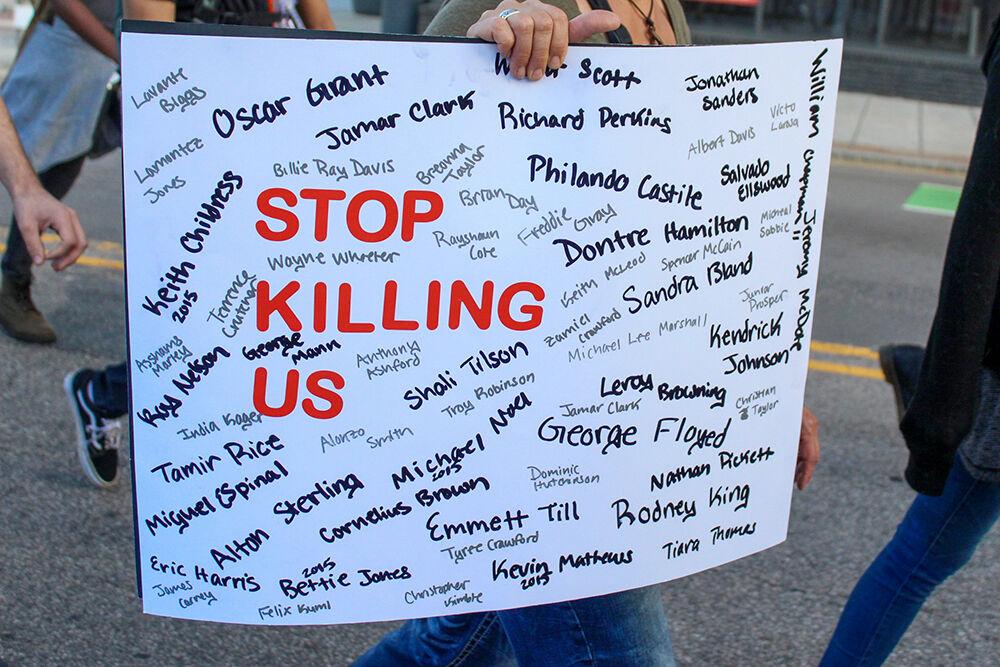 Lavante
Biggs
Oscar Grant
Scott
Jonathan
Sanders
William
Chapman II
Jamar Clark
Richard Perkins
Albert Davis
Victo
Larosa
Lamontez
Jones
Billie Ray Davis
Breonna
Taylor
Philando Castile
Salvado
Ellswood
Keith Childress
2015
STOP
Brian Day
Rayshaun
Cole
Freddie Gray
Dontre Hamilton
Micheal
Sabbie
Jeremy McDole
Wayne Wheeler
Keith McLeod
Spencer McCain
Terrence
KILLING
Zamiel
Crawford
Sandra Bland
Junior
Prosper
Asshams
Manley
Ray Nelson
George
Mann
Anthony
Ashford
Michael Lee Marshall
Kendrick
Johnson
US
Shali Tilson
Troy Robinson
Leroy Browning
Christian
Taylor
India Kager
Alonzo Smith
Jamar Clark
Tamir Rice
Michael Noel
2015
George Floyd
Miguel Espinal
Alton Sterling
Cornelius Brown
Dominic
Hutchinson
Nathan Pickett
Emmett Till
Rodney King
Eric Harris
Tyree Crawford
Tiara Thomas
James
Carney
2015
Bettie Jones
Kevin Mathews
2015
Felix Kumi
Christopher
Kimble